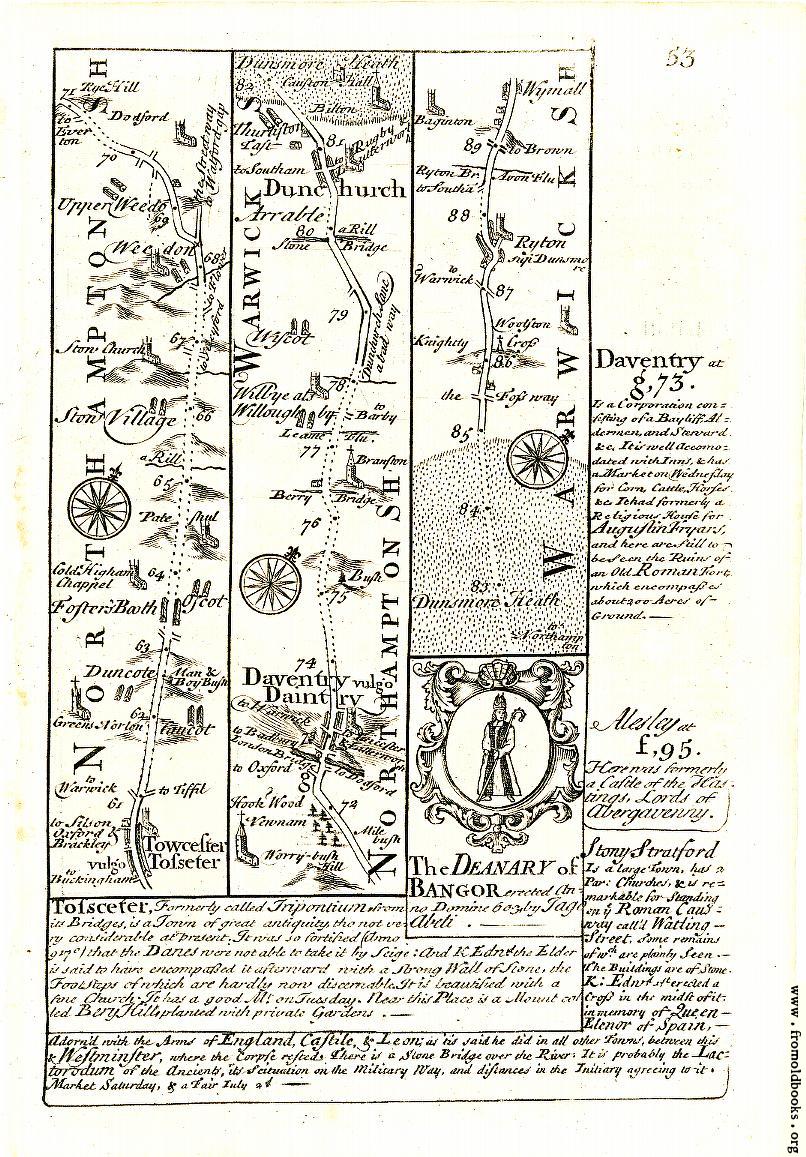 53
71
Rye Hill
to
Ever
ton
Dodford
70
Upper Weedo
69
Weedon
68
67
Stow Church
Stow Village
66
a Rill
65
Pate shul
Cold Higham
Chappel
64
Foster's Booth
Oscot
63
Duncote
Man &
Boy Bush
Greens Norton
62
to
Warwick
to Tiffil
61
to Silson
Oxford &
Brackley
Towcester
vulgo Tosseter
to
Buckingham
NORTHAMPTON SH
Dunsmore Heath
82
Causton Hall
Bilton
Thurlston
to Rugby
81
to Southam
Dunchurch
Arrable
80
a Rill
Stone Bridge
79
Dunchurch lane
a bad way
Wiscot
78
Willbye al
Willoughby
to Barby
Leame Flu.
77
Branston
Berry Bridge
76
Bush
75
74
Daventry vulgo
Daintry
to Warwick
to Banbury
London Bridge
to Oxford
Hook Wood
72
Newnam
Mile
bush
Worry-bush
Hill
WARWICK S
NORTHAMPTON SH
Wymall
Baginton
89
to Brown
Ryton Br.
Avon Flu.
to Southa
88
Ryton
sup Dunsmo
re
to
Warwick
87
Woolston
Knightly Cross
86
the Foss way
85
84
83
Dunsmore Heath
to
Northamp
ton
WARWICK SH
Daventry at
g,73.
Is a Corporation con=
sisting of a Bayliff, Al=
dermen, and Steward
&c. It is well Accomo=
dated with Inns, & has
a Market on Wednesday
for Corn, Cattle, Horses
&c It had formerly a
Religious House for
Augustin Fryars,
and here are still to
be seen the Ruins of
an Old Roman Fort,
which encompasses
about 200 Acres of
Ground.
Alesley at
f,95.
Here was formerly
a Castle of the Has=
tings, Lords of
Abergavenny.
The DEANARY of
BANGOR erected An=
no Domine 603 by Jago
Abeti.
Tossceter, Formerly called Tripontium from
its Bridges, is a Town of great antiquity, tho not ve=
ry considerable at present, It was so fortified (Anno
917) that the Danes were not able to take it by Seige: And K. Edwd. the Elder
is said to have encompassed it afterward with a Strong Wall of Stone, the
Footsteps of which are hardly now discernable. It is beautified with a
fine Church. It has a good Mt. on Tuesday. Near this Place is a Mount cal
led Bery Hill, planted with private Gardens.
Stony Stratford
Is a large Town, has 2
Par: Churches, & is re=
markable for Standing
on ye Roman Caus=
way call'd Watling=
Street, some remains
of wch are plainly Seen.
The Buildings are of Stone.
K. Edwd. 1st erected a
Cross in the midst of it
in memory of Queen
Elenor of Spain,
Adorn'd with the Arms of England, Castile, & Leon; as tis said he did in all other Towns, between this
& Westminster, where the Corpse rested. There is a Stone Bridge over the River: It is probably the Lac=
torodum of the Ancients, its Scituation on the Military Way, and distances in the Initiary agreeing to it.
Market Saturday, & a Fair July 2d
www.fromoldbooks.org